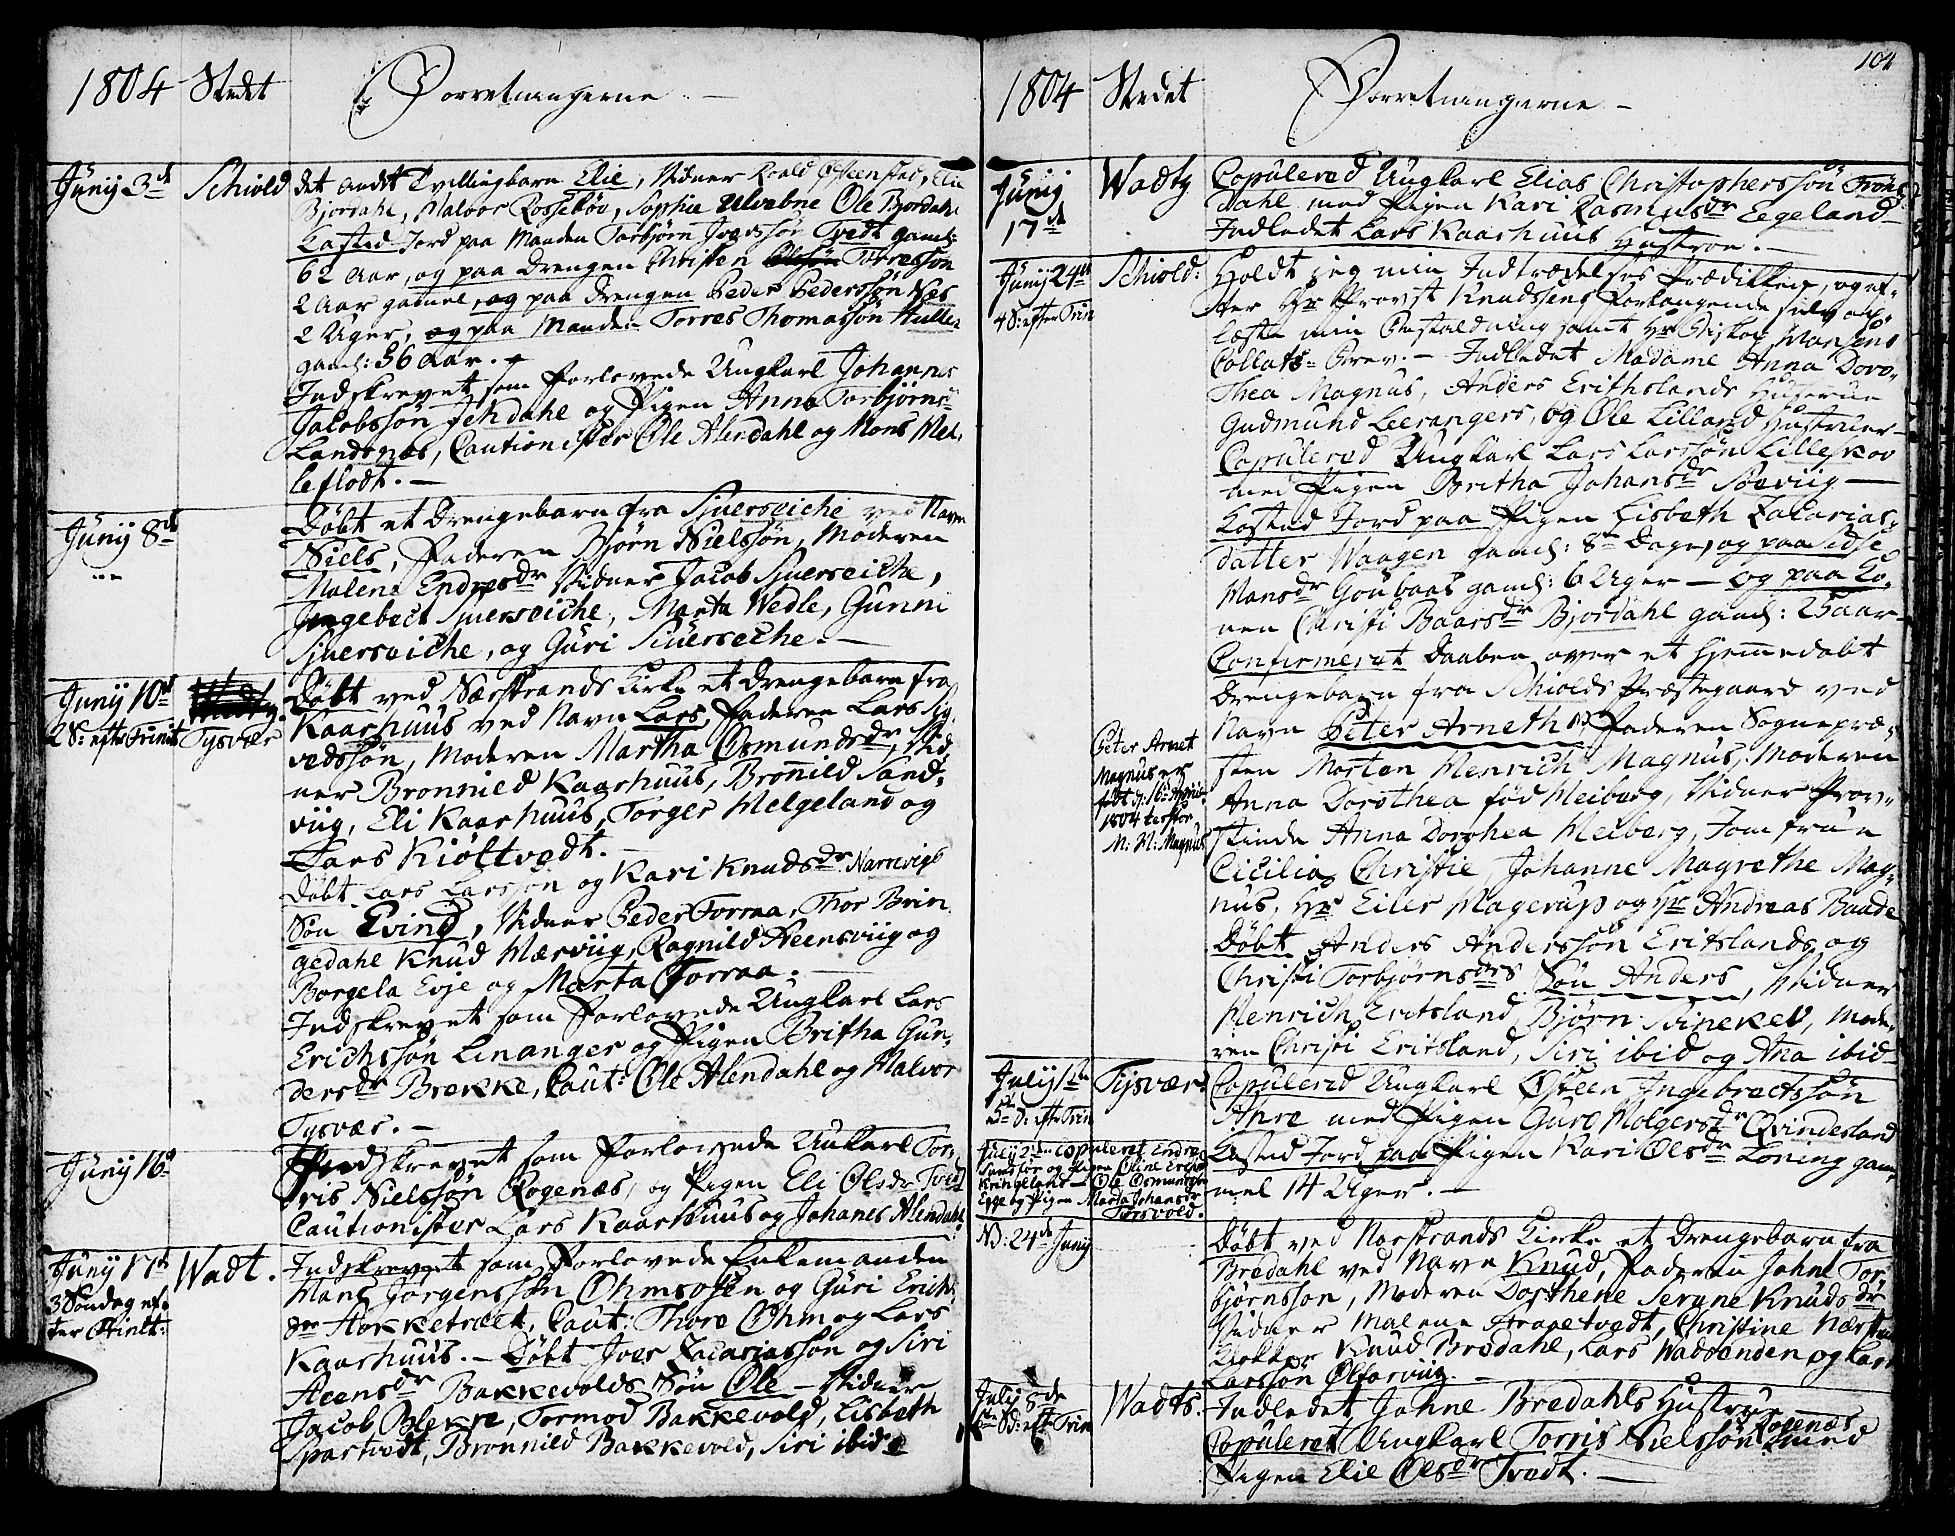 1804 Stedet Forretningerne –
Junij 3d Schiold det andet Tvillingbarn Elie, Vidner Roald Østeenstad, Elie
Bjordahl, Halvor Rossebøe, Sophie Ulvebne Ole Bjordahl
Casted Jord paa Manden Torbjørn Joersøn Tvedt gaml:
62 Aar, og paa Drengen Christen Torressøn
2 Aar gamel, og paa Drengen Peder Pederssøn Nes
2 Uger, og paa Manden Torres Thomassøn Hullen
gaml: 56 Aar.
Indskrevet som Forlovede Ungkarl Johannes
Jacobssøn Jehdahl og Pigen Anna Torbjørns-
Landsnæs, Cautionister Ole Alendahl og Mons Mel-
leflodt. –
Junij 8de Døbt et Drengebarn fra Sjuerseiche ved Navn
Niels, Faderen Bjørn Nielssøn, Moderen
Malene Endresdr Vidner Jacob Sjuerseiche,
Ingebect Sjuerseiche, Marta Wedle, Gunni
Sjuerseiche, og Guri Siuerseche. –
Junij 10d
2 S: efter Trinit Tysvær Døbt ved Nærstrands Kirke et Drengebarn fra
Kaarhuus ved Navn Lars, Faderen Lars Sig-
vedssøn, Moderen Martha Osmundsdr, Vid-
ner Bronnild Kaarhuus, Bronnild Sand-
viig, Eli Kaarhuus, Torger Helgeland og
Lars Kiøltvedt. –
Døbt Lars Larssøn og Kari Knudsdr Narreviigs
Søn Evind, Vidner Peder Torraa, Thor Brin-
gedahl Knud Hærviig, Ragnild Steensviig og
Borgela Evje og Marta Torraa. –
Indskrevet som Forlovede Ungkarl Lars
Erichssøn Linanger og Pigen Britha Gun-
dersdr Brekke, Caut: Ole Alendahl og Halvor
Tysvær. –
Junij 16d Indskrevet som Forlovede Unkarl Tor-
ris Nielssøn Rogenæs, og Pigen Eli Olsdr Tvedt
Cautionister Lars Kaarhuus og Johanes Alendahl.
Junij 17de
3 Søndag ef-
ter Trinit: Wadt. Indskrevet som Forlovede Enkemanden
Hans Jørgenssøn Ohmsosen og Guri Erichs
dr Stokketræet, Caut: Thore Ohm og Lars
Kaarhuus. – Døbt Joer Zacariassøn og Siri
Steensdr Bakkevolds Søn Ole – Vidner
Jacob Blekke, Tormod Bakkevold, Lisbeth
Spartvedt, Bronnild Bakkevold, Siri ibid
104
1804 Stedet Forretningerne –
Junij
17de Wadtz Copulered Ungkarl Elias Christopherssøn Frøns-
dahl med Pigen Kari Rasmusdr Eegeland
Indledet Lars Kaarhuus Hustroe. –
Junij 24de
4 S: efter Trin Schiold: Holdt jeg min Indtrædelses Prædikken, og ef-
ter Hr Provst Knudsens Forlangende selv op-
læste min Bestaldning samt Hr Biskop Hansens
Collats- Brev. – Indledet Madame Anna Doro-
thea Magnus, Anders Erithslands Hustrue
Gudmund Leerangers, og Ole Lilland Hustruer
Copulered Ungkarl Lars Larssøn Lilleskov
med Pigen Britha Johansdr Søeviig –
Casted Jord paa Pigen Lisbeth Zacarias-
datter Waagen gaml: 8te Dage, og paa Sidse
Hansdr Goubaas gaml: 6 Uger – og paa Ko-
nen Christi Baarsdr Bjordahl gaml: 25 aar –
Confirmeret Daaben over et hjemmedøbt
Drengebarn fra Schiolds Præstegaard ved
Navn Peter Arneth, Faderen Sognepræ-
sten Morten Henrich Magnus, Moderen
Anna Dorothea fød Meiborg, Vidner Prov-
stinde Anna Dorothea Meiborg, Jomfrue
Cicilia Christie, Johanne Magrethe Mag-
nus, Hr Eiler Hagerup og Hr Andreas Baade
Peter Arnet
Magnus er
født d: 16de
1804
M: H: Magnus
Døbt Anders Anderssøn Eritslands og
Christi Torbjørnsdrs Søn Anders, Vidner
Henrich Eritsland, Bjørn Stinekev, Made-
ren Christi Eritsland, Siri ibid og Ana ibid –
Julij 1te
5te S: eft Trin Tysvær: Copulered Ungkarl Østeen Ingebrectssøn
Apre med Pigen Guro Holgersdr Qvindesland
Casted Jord paa Pigen Kari Olsdr Løning gam-
mel 14 Uger. –
Julij 2den copuleret Endre
Sandfør og Pigen Oline Erichsdr
Kringeland – Ole Osmundsøn
Egge og Pigen Marta Johansdr
Torsvold.
NB: 24de Junij Døbt ved Norstrands Kirke et Drengebarn fra
Bredahl ved Navn Knud, Faderen Johne Tor-
bjørnssøn, Moderen Dorthene Serene Knudsdr
Vidner Malene Frapetvedt, Christine Nærstrand
Klokker Knud Bredahl, Lars Wadsenden og Lars
Larssøn Ølfarviig. –
Julij 8de
S: eft Trin Wadts. Indledet Johne Bredahls Hustrue
Copuleret Ungkarl Torris Nielssøn Rogenæs med
Pigen Elie Olsdr Tvedt. –